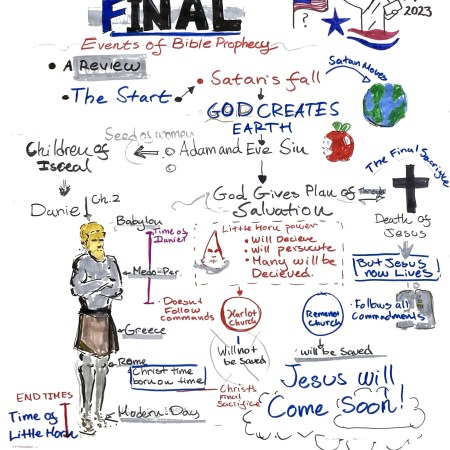 FINAL
?
2023
Events of Bible Prophecy
• A Review
• The Start
• Satan's fall
Satan Moves
GOD CREATES
EARTH
Seed as women
Children of
Isreal
Adam and Eve Sin
The Final Sacrifice
God Gives Plan of
Through
Salvation
Death of
Jesus
But Jesus
now Lives!
Daniel
Ch. 2
Babylon
Time of
Daniel
Medo-Per.
Greece
Rome
Christ time
born on time
Modern Day
END TIMES
Time of
Little Horn
Little Horn power
• Will Decieve
• will persecute
• Many will be
Decieved.
• Doesn't
Follow
commands
Harlot
church
Will not
be Saved
Christs
Final
Sacrifice
Remenet
church
• Follows all
Commadments
will be Saved
Jesus will
Come Soon!